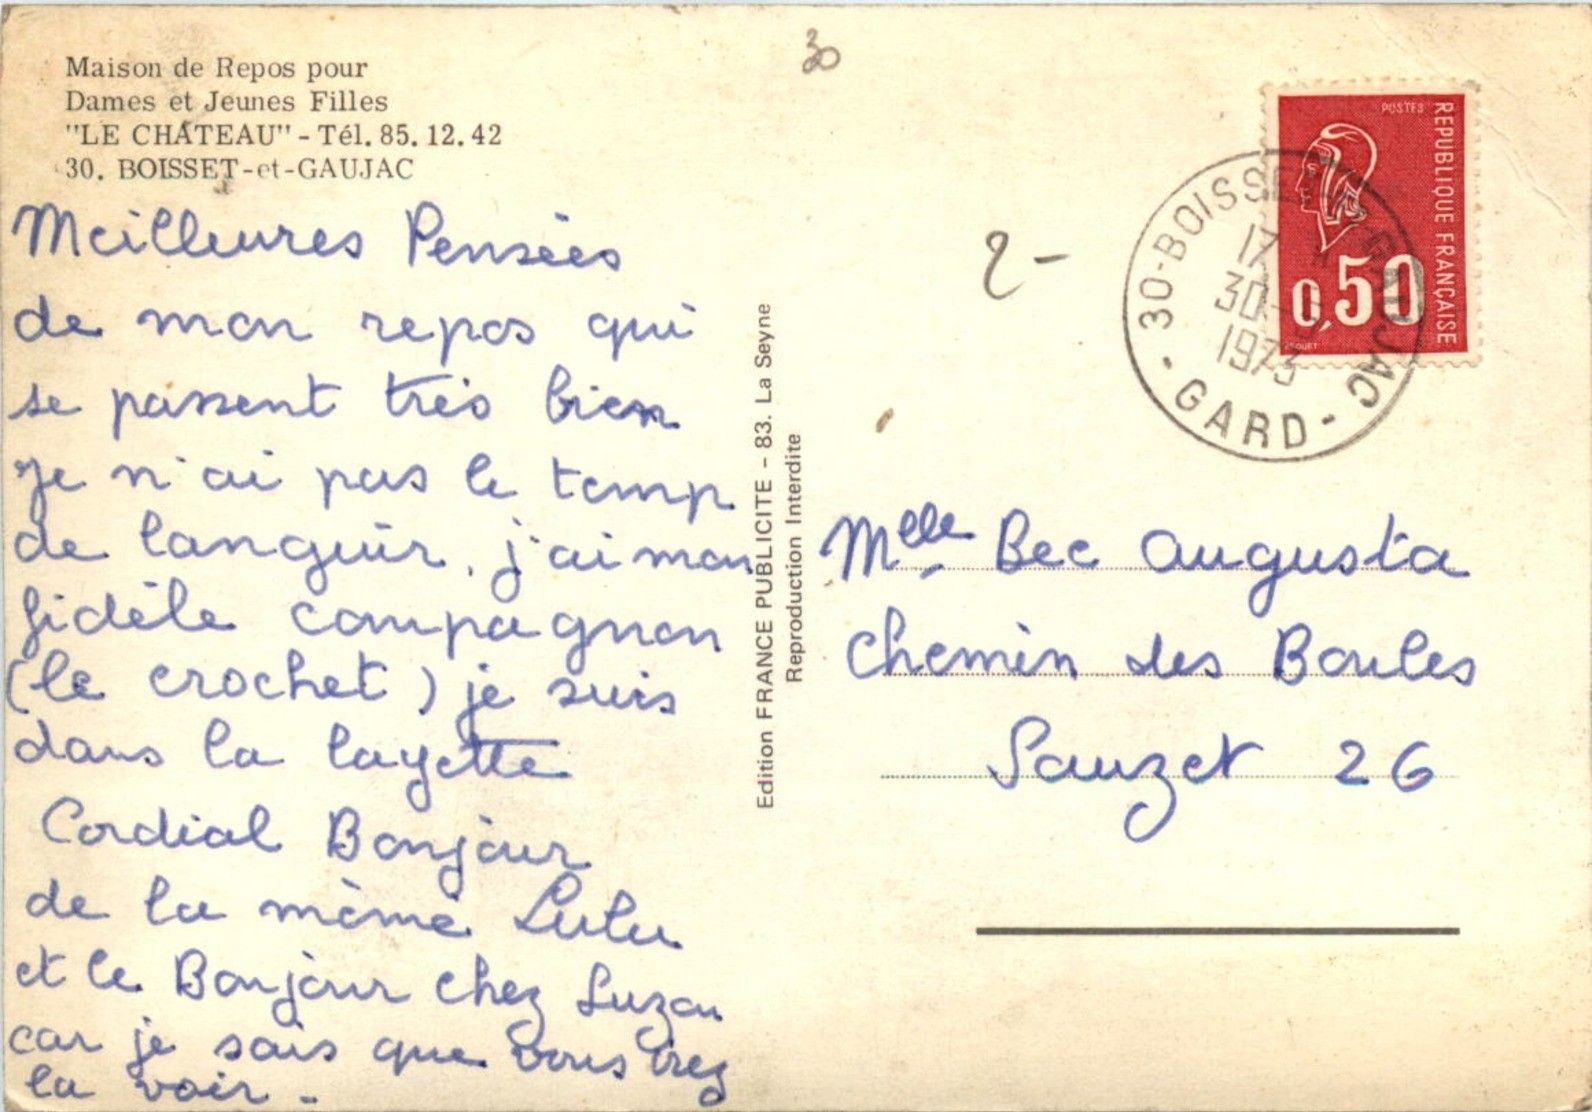 30
Maison de Repos pour
Dames et Jeunes Filles
"LE CHÂTEAU" - Tél. 85.12.42
30. BOISSET-et-GAUJAC
Meilleures Pensées
de mon repos qui
se passent très bien
Je n'ai pas le temp
de languir, j'ai mon
fidèle compagnon
(le crochet) je suis
dans la layette
Cordial Bonjour
de la même Lulu
et le Bonjour chez Luzou
car je sais que vous irez
la voir.
Edition FRANCE PUBLICITE - 83. La Seyne
Reproduction Interdite
2-
POSTES
REPUBLIQUE FRANÇAISE
0,50
30-BOISSET-et-GAUJAC
17 H
30-
1973
- GARD -
Melle Bec Augusta
Chemin des Boules
Sauzet 26